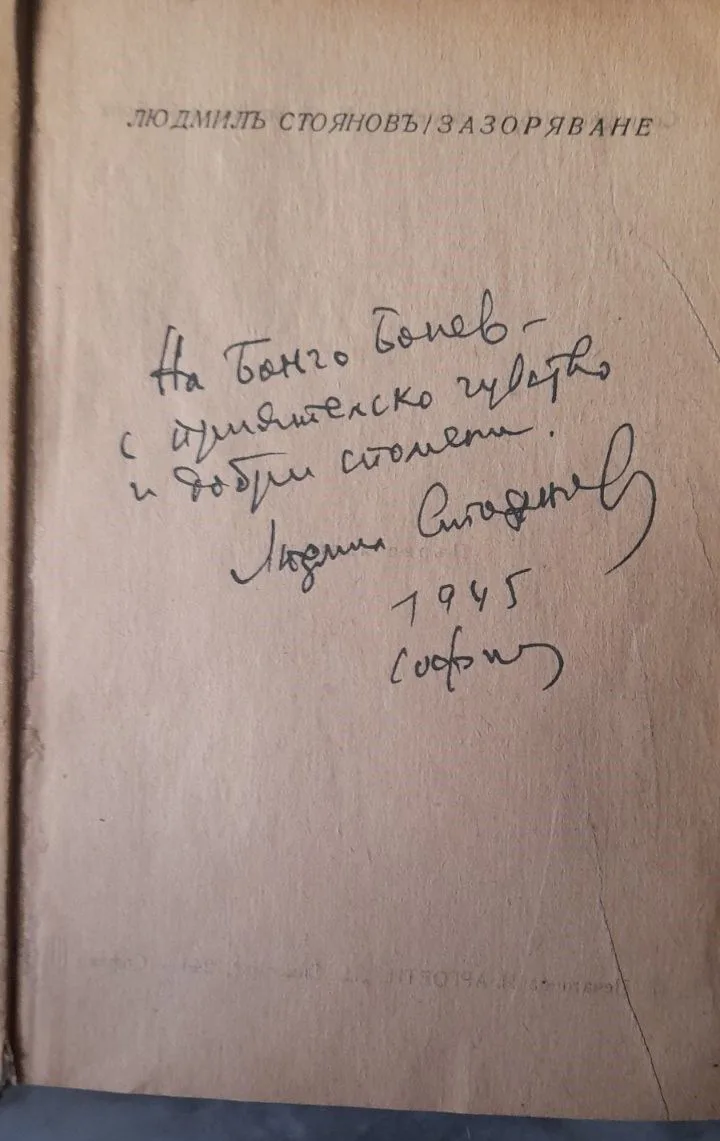 ЛЮДМИЛЪ СТОЯНОВЪ / ЗАЗОРЯВАНЕ
На Бонго Бонев –
с приятелско чувство
и добри спомени.
Людмил Стоянов
1945
София